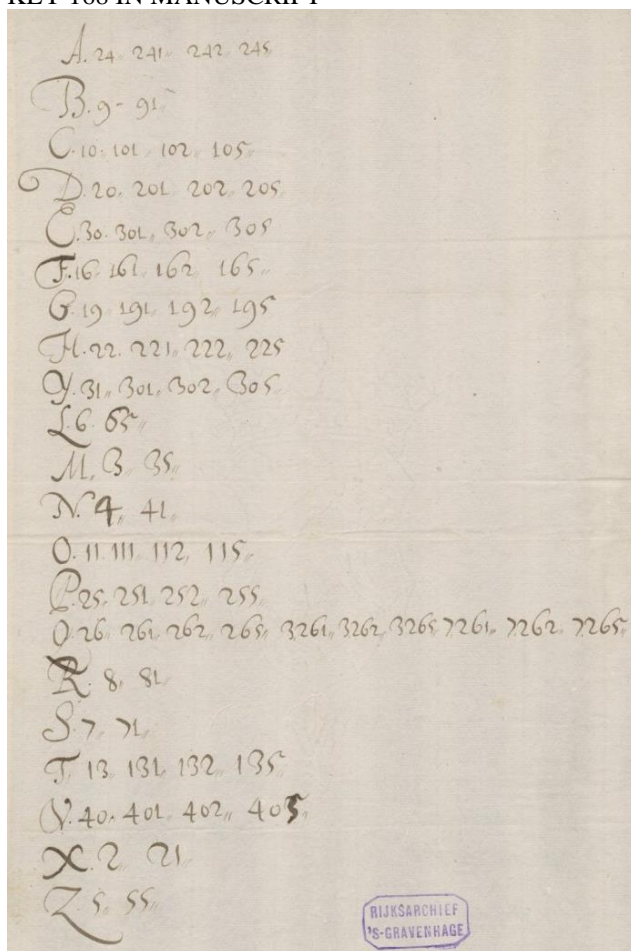 KEY 168 IN MANUSCRIPT
A. 24. 241. 242. 245
B. 9 - 91.
C. 10. 101. 102. 105.
D. 20. 201. 202. 205.
E. 30. 301. 302. 305
F. 16. 161. 162. 165.
G. 19. 191. 192. 195
H. 22. 221. 222. 225
Y. 31. 301. 302. 305
L. 6. 65.
M. 3. 35.
N. 4. 41.
O. 11. 111. 112. 115.
P. 25. 251. 252. 255.
Q. 26. 261. 262. 265. 3261. 3262. 3265. 7261. 7262. 7265.
R. 8. 81.
S. 7. 71.
T. 13. 131. 132. 135.
V. 40. 401. 402. 405.
X. 2. 21.
Z. 5. 55.
RIJKSARCHIEF
'S-GRAVENHAGE